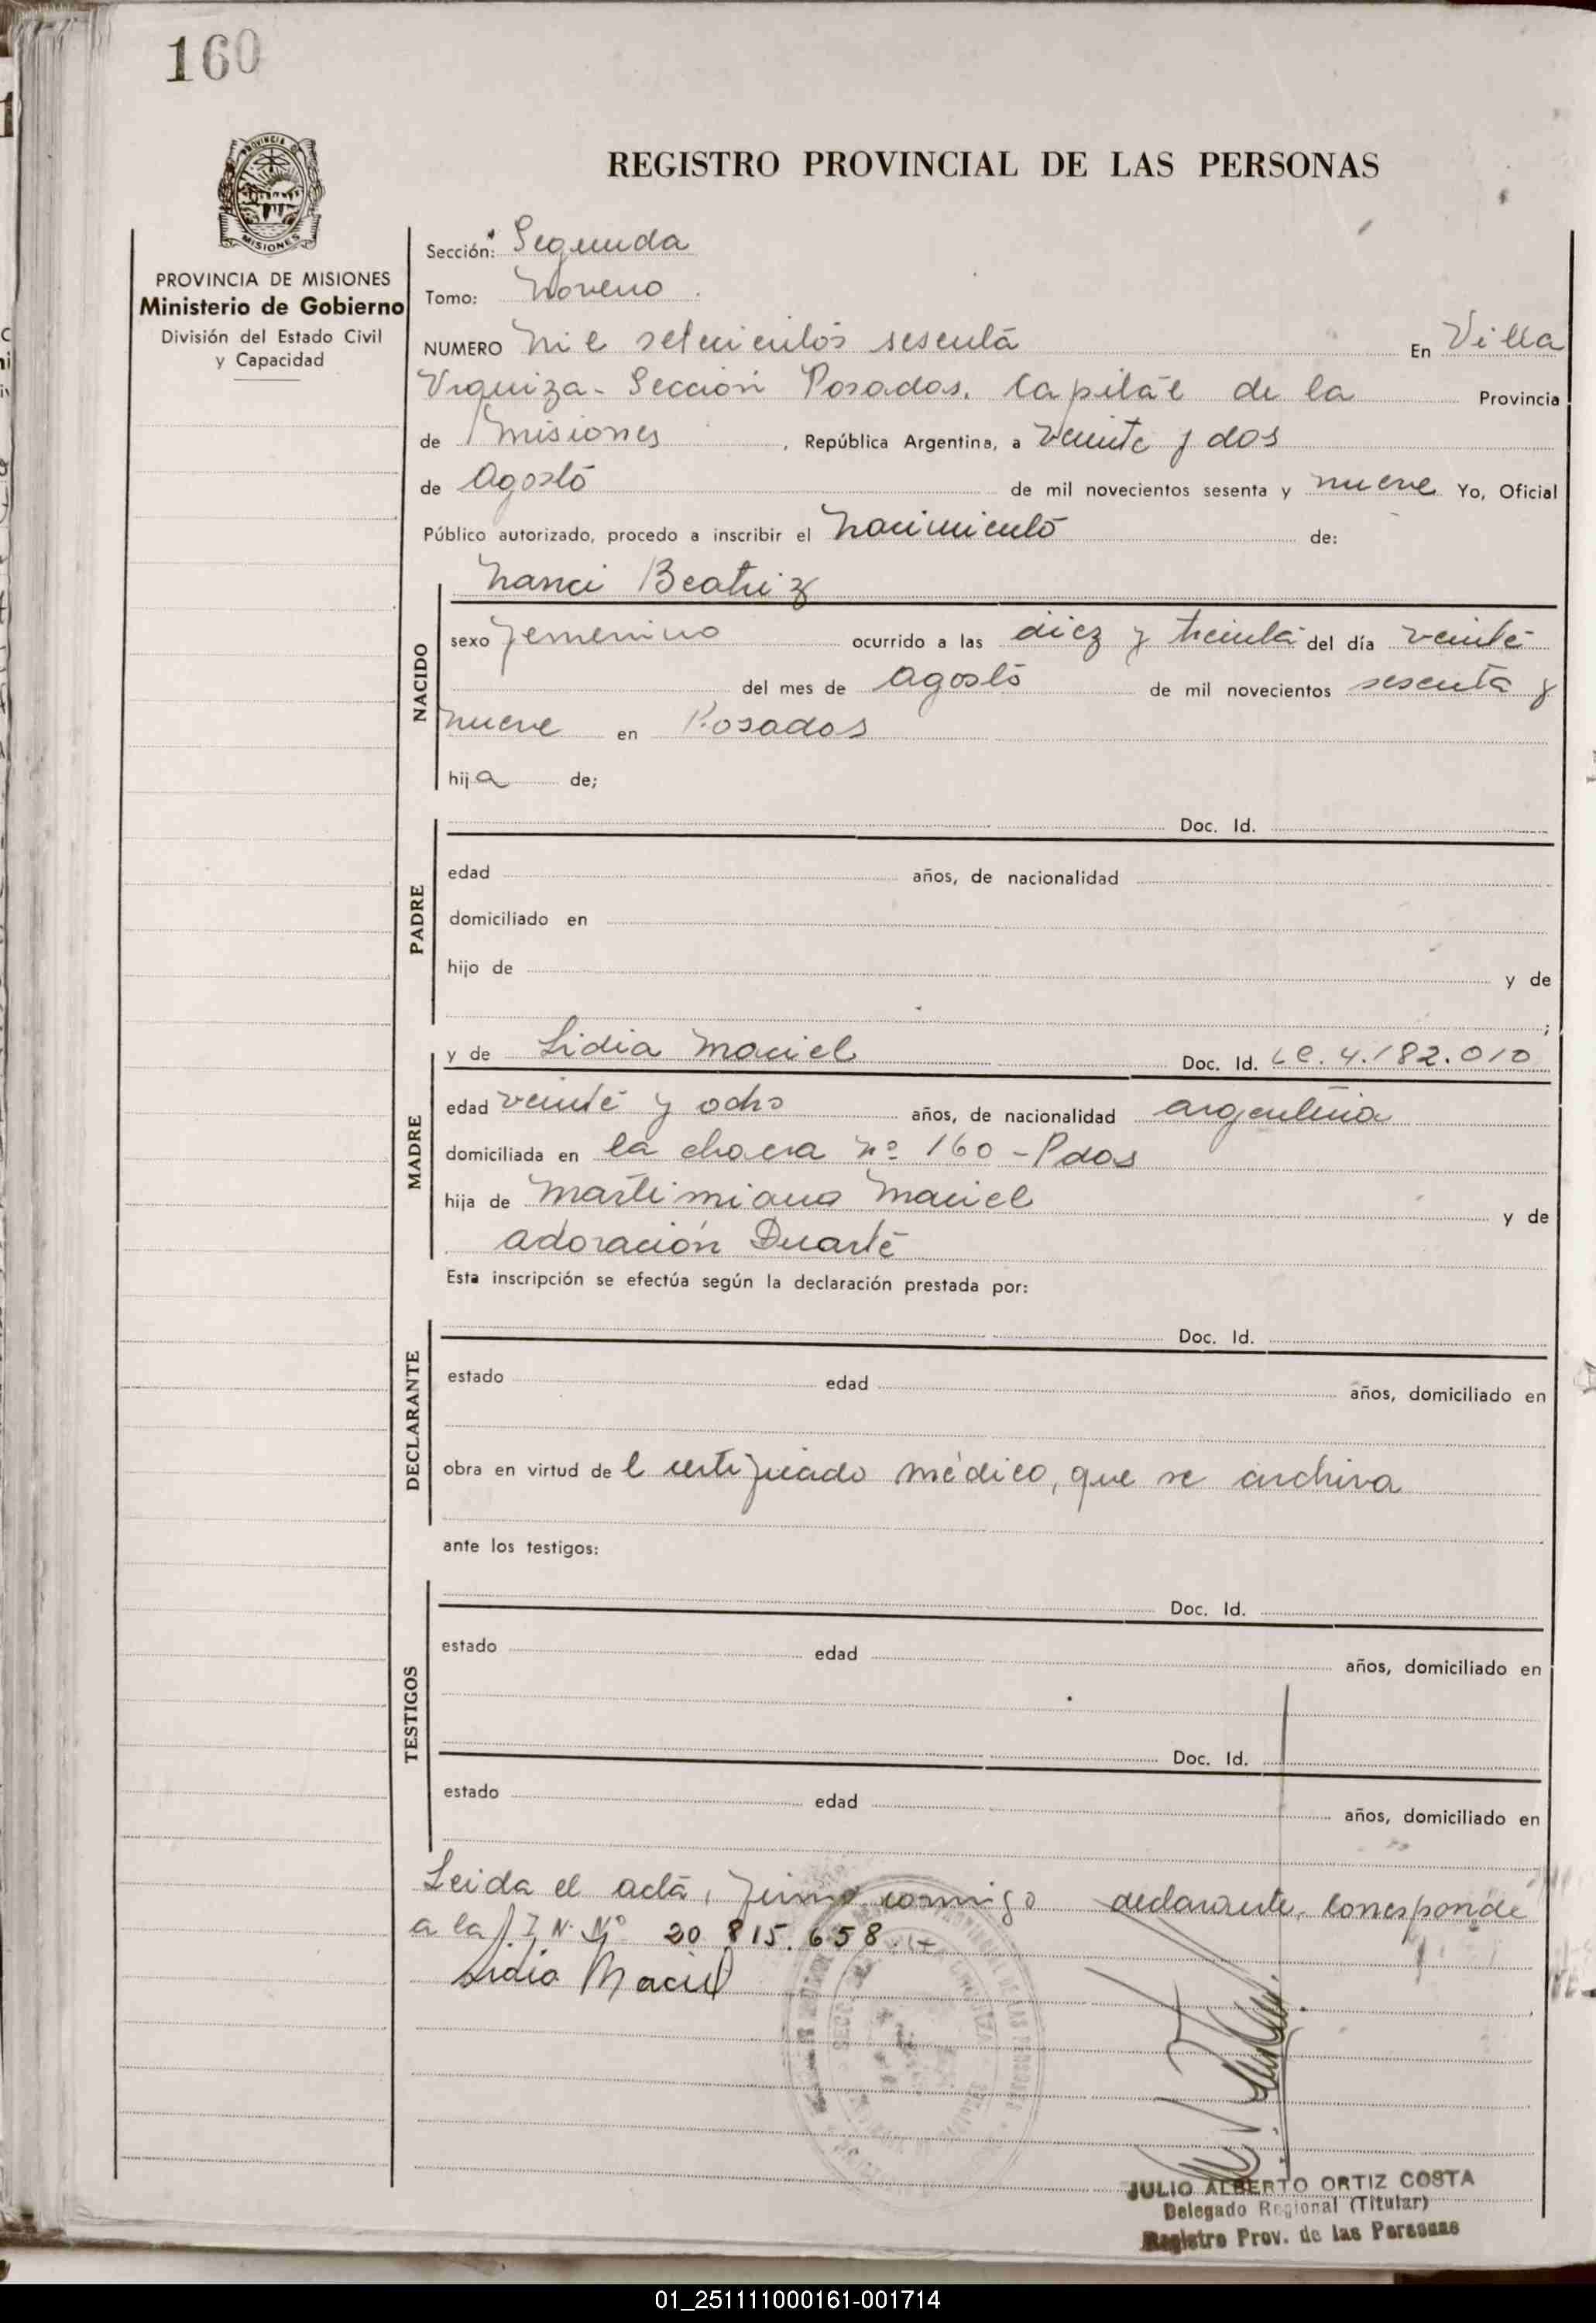 160
PROVINCIA DE
MISIONES
PROVINCIA DE MISIONES
Ministerio de Gobierno
División del Estado Civil
y Capacidad
REGISTRO PROVINCIAL DE LAS PERSONAS
Sección: Segunda
Tomo: Noveno
NUMERO Mil setecientos sesenta En Villa
Urquiza - Sección Posadas. Capital de la Provincia
de Misiones, República Argentina, a veinte y dos
de Agosto de mil novecientos sesenta y nueve Yo, Oficial
Público autorizado, procedo a inscribir el Nacimiento de:
Nanci Beatriz
NACIDO
sexo femenino ocurrido a las diez y treinta del día veinte
del mes de Agosto de mil novecientos sesenta y
nueve en Posadas
hija de;
PADRE
Doc. Id.
edad años, de nacionalidad
domiciliado en
hijo de y de
;
MADRE
y de Lidia Maciel Doc. Id. LC. 4.182.010
edad veinte y ocho años, de nacionalidad argentina
domiciliada en la chacra Nº 160 - Pdas
hija de Martimiana Maciel y de
Adoración Duarte
Esta inscripción se efectúa según la declaración prestada por:
DECLARANTE
Doc. Id.
estado edad años, domiciliado en
obra en virtud del certificado médico, que se archiva
ante los testigos:
TESTIGOS
Doc. Id.
estado edad años, domiciliado en
Doc. Id.
estado edad años, domiciliado en
Leida el acta, firma conmigo declarante. Corresponde
a la Nº 20 815.658
Lidia Maciel
JULIO ALBERTO ORTIZ COSTA
Delegado Regional (Titular)
Registro Prov. de las Personas
01_251111000161-001714